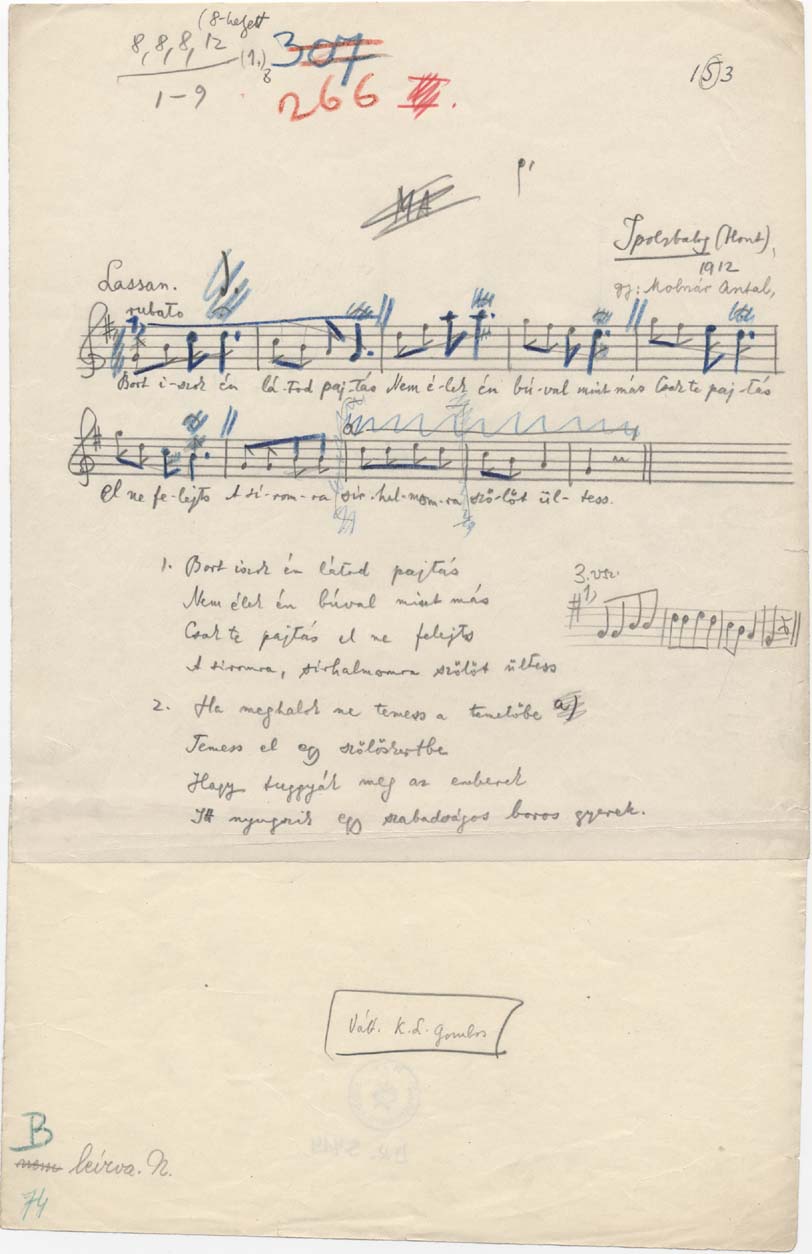 (8-helyett
8, 8, 8, 12
(1.) 8
1-9
307
266
153
MA
Ipolybalog (Hont),
1912
gy: Molnár Antal,
Lassan.
rubato
Bort i-szok én lá-tod paj-tás Nem é-lek én bú-val mint más Csak te paj-tás
el ne fe-lejts A sí-rom-ra sír-hal-mom-ra szőlőt ül-tess.
3. vsz.
1)
1. Bort iszok én látod pajtás
Nem élek én búval mint más
Csak te pajtás el ne felejts
A síromra, sírhalmomra szőlőt ültess
2. Ha meghalok ne temess a temetőbe a)
Temess el egy szőlőskertbe
Hagy tuggyák meg az emberek
Itt nyugszik egy szabadságos boros gyerek.
Vált. K.L. Gombos
B
nem leírva. N.
74